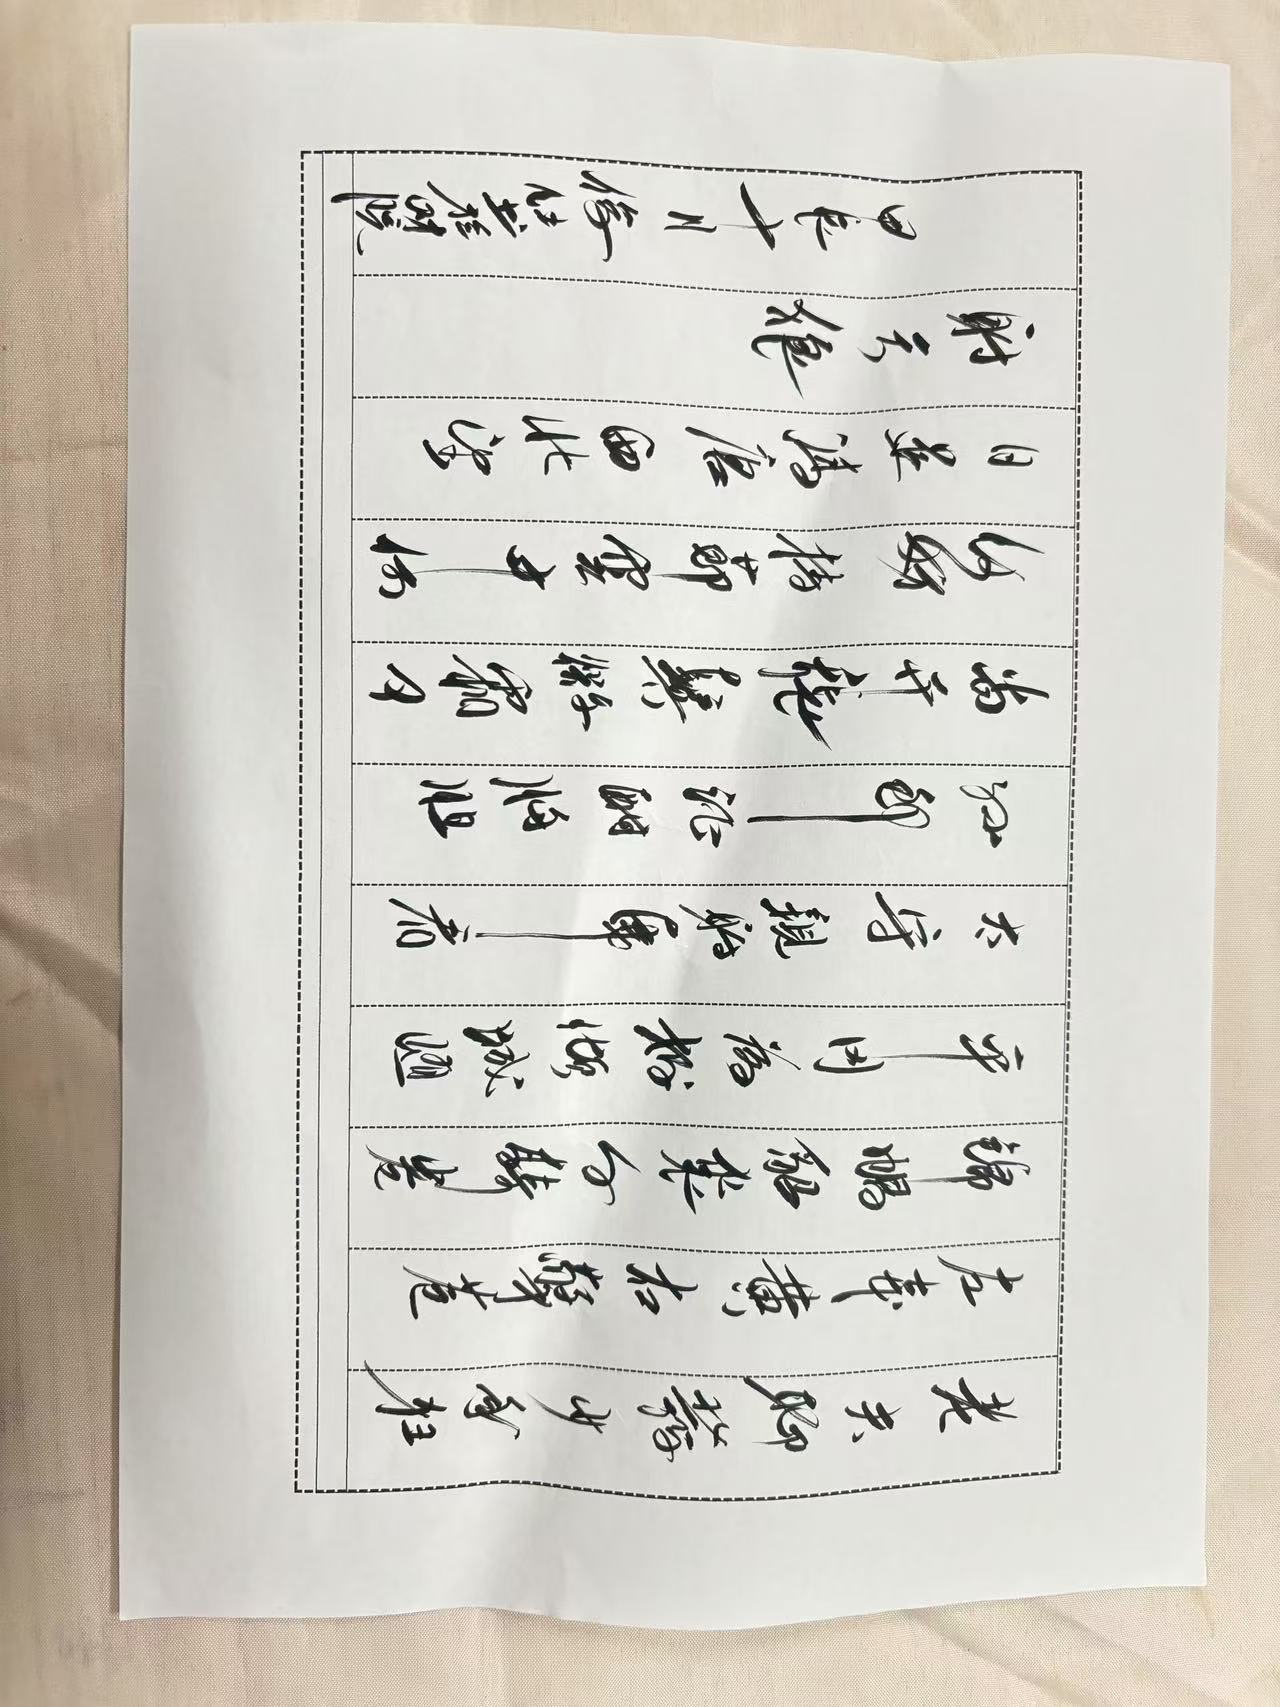 老夫聊發少年狂
左牽黃右擎蒼
錦帽貂裘千騎卷
平岡為報傾城隨
太守親射虎看
孫郎酒酣胸膽
尚开張鬢微霜又
何妨持節雲中何
日遣馮唐西北望
射天狼
甲辰十月